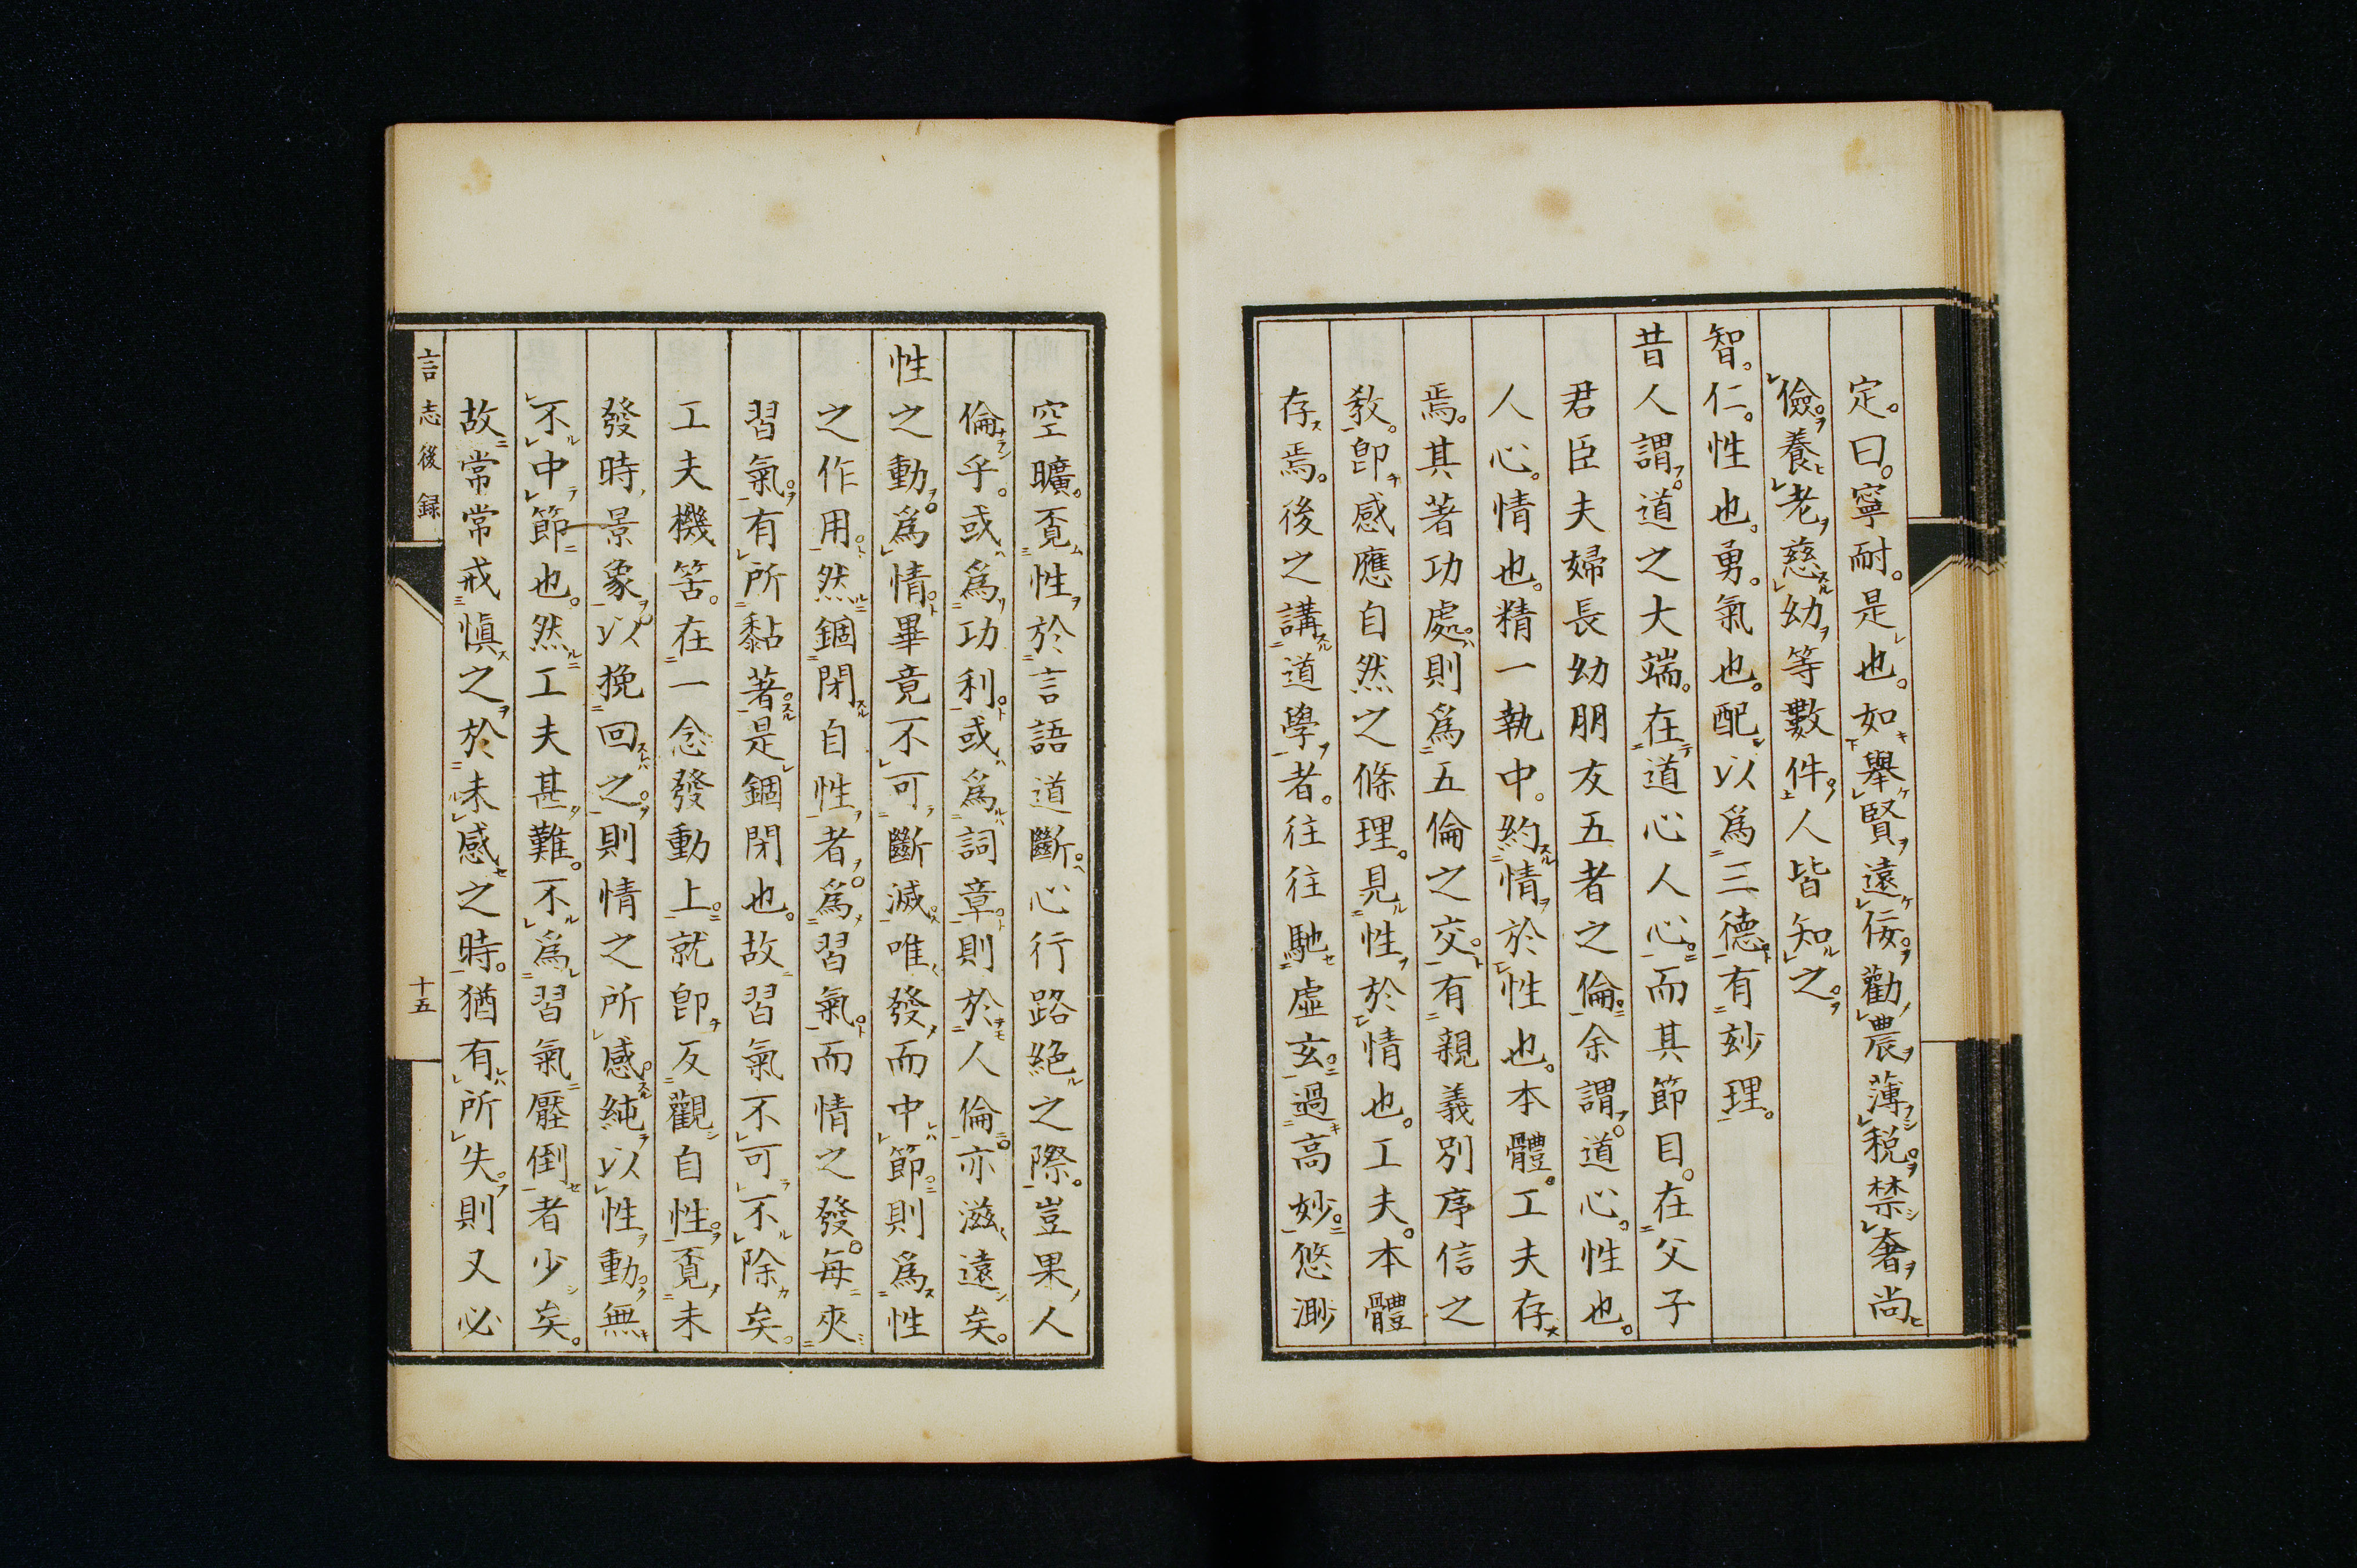 定。曰。寧耐。是也。如擧賢遠佞。勸農薄税。禁奢尚
儉。養老慈幼等數件。人皆知之。
智。仁。性也。勇。氣也。配以爲三德。有玅理。
昔人謂。道之大端。在道心人心。而其節目。在父子
君臣夫婦長幼朋友五者之倫。余謂。道心。性也。
人心。情也。精一執中。約情於性也。本體。工夫存
焉。其著功處。則爲五倫之交。有親義別序信之
敎。卽感應自然之條理。見性於情也。工夫。本體
存焉。後之講道學者。往往馳虛玄。過高妙。悠渺
空曠。覔性於言語道斷。心行路絶之際。豈果人
倫乎。或爲功利。或爲詞章。則於人倫。亦滋遠矣。
性之動。爲情。畢竟不可斷滅。唯發而中節。則爲性
之作用。然錮閉自性者。爲習氣。而情之發。每夾
習氣。有所黏著。是錮閉也。故習氣不可不除矣。
工夫機筈。在一念發動上。就卽反觀自性。覔未
發時景象。以挽回之。則情之所感。純以性動。無
不中節也。然工夫甚難。不爲習氣壓倒者少矣。
故常常戒愼之於未感之時。猶有所失。則又必
言志後録
十五